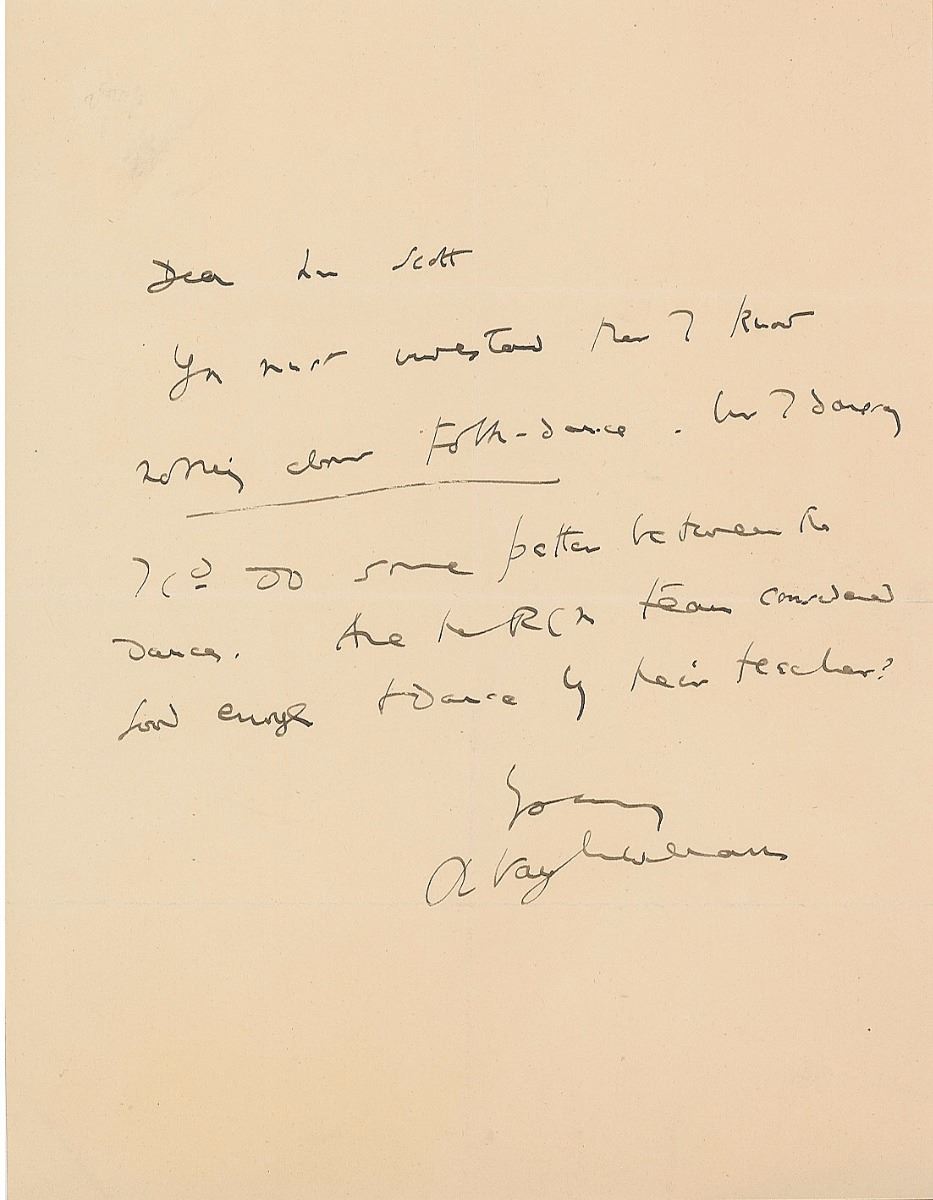 Dear Mr Scott
You must understand that I know
nothing about Folk-dance. But I daresay
I cd do some patter between the
Dances. Are the RCM team considered
good enough to Dance by their teacher?
Yours
R Vaughan Williams